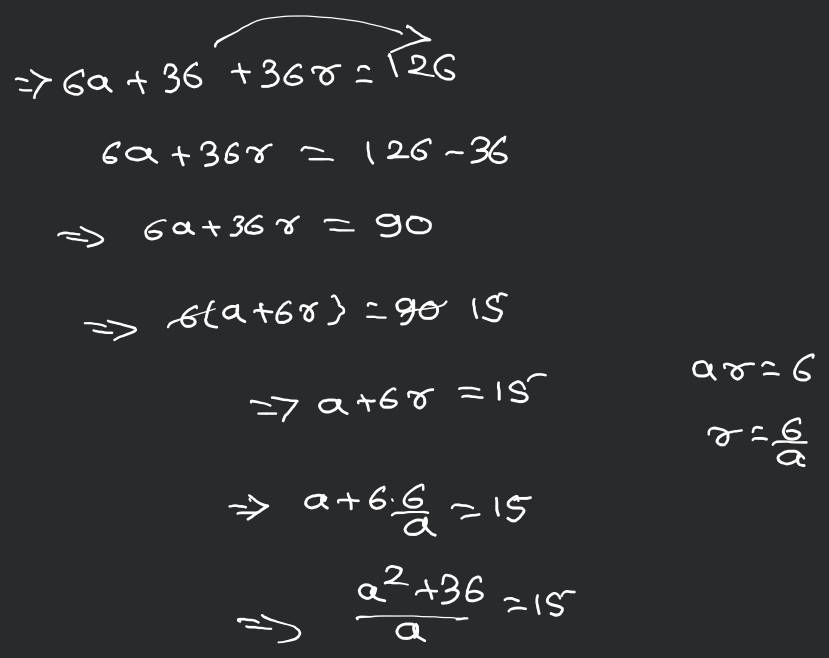 ⇒ 6a + 36 + 36r = 126
6a + 36r = 126 - 36
⇒ 6a + 36r = 90
⇒ 6{a + 6r} = 90 15
ar = 6
⇒ a + 6r = 15
r = 6/a
⇒ a + 6·6/a = 15
⇒ (a² + 36)/a = 15